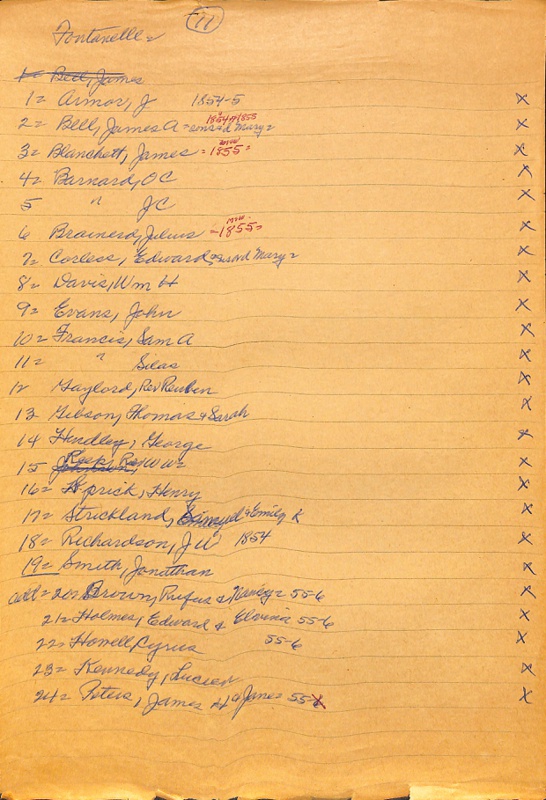 11
Fontanelle =
1= Bell, James
1= Armor, J 1854-5 X
2= Bell, James A = and Mary = 1854 1855 X
3= Blanchett, James = 1855 = X
4= Barnard, OC X
5 " JC X
6 Brainerd, Julius = 1855 = X
7= Corless, Edward and Mary = X
8= Davis, Wm H X
9= Evans, John X
10= Francis, Sam A X
11= " Silas X
12 Gaylord, Rev Reuben X
13 Gibson, Thomas & Sarah X
14 Hendley, George X
15 Rev Wm X
16= Henry X
17= Strickland, Samuel & Emily K X
18= Richardson, JW 1854 X
19= Smith, Jonathan X
add = 20= Brown, Rufus & Nancy = 55-6 X
21= Holmes, Edward & Elvina 55-6 X
22= Howell, Cyrus 55-6 X
23= Kennedy, Lucien X
24= Peters, James H & Jane = 55 X